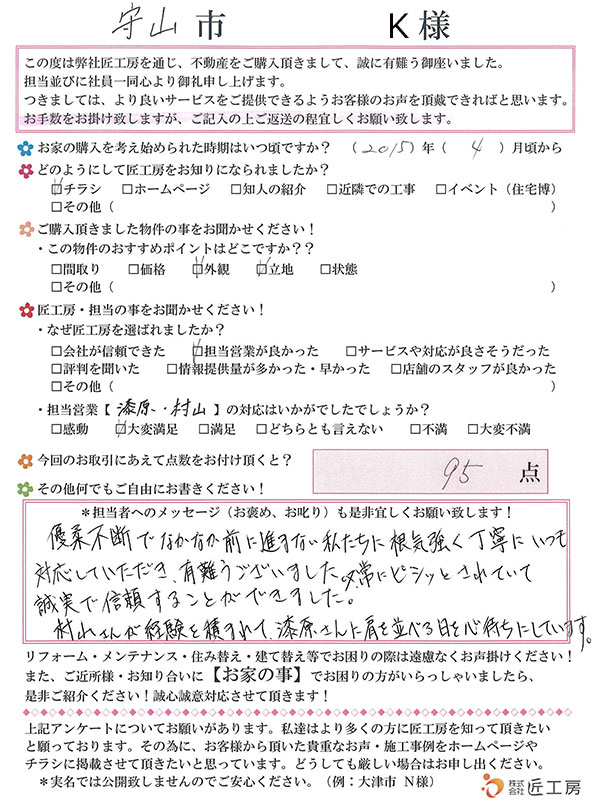 守山市 K様
この度は弊社匠工房を通じ、不動産をご購入頂きまして、誠に有難う御座いました。
担当並びに社員一同心より御礼申し上げます。
つきましては、より良いサービスをご提供できるようお客様のお声を頂戴できればと思います。
お手数をお掛け致しますが、ご記入の上ご返送の程宜しくお願い致します。
お家の購入を考え始められた時期はいつ頃ですか？ （2015）年（ 4 ）月頃から
どのようにして匠工房をお知りになられましたか？
☑チラシ □ホームページ □知人の紹介 □近隣での工事 □イベント（住宅博）
□その他（ ）
ご購入頂きました物件の事をお聞かせください！
・この物件のおすすめポイントはどこですか？？
□間取り □価格 ☑外観 ☑立地 □状態
□その他（ ）
匠工房・担当の事をお聞かせください！
・なぜ匠工房を選ばれましたか？
□会社が信頼できた ☑担当営業が良かった □サービスや対応が良さそうだった
□評判を聞いた □情報提供量が多かった・早かった □店舗のスタッフが良かった
□その他（ ）
・担当営業【 漆原・村山 】の対応はいかがでしたでしょうか？
□感動 ☑大変満足 □満足 □どちらとも言えない □不満 □大変不満
今回のお取引にあえて点数をお付け頂くと？ 95 点
その他何でもご自由にお書きください！
＊担当者へのメッセージ（お褒め、お叱り）も是非宜しくお願い致します！
優柔不断でなかなか前に進まない私たちに根気強く丁寧にいつも
対応していただき、有難うございました。常にピシッとされていて
誠実で信頼することができました。
村山さんが経験を積まれて、漆原さんに肩を並べる日を心待ちにしています。
リフォーム・メンテナンス・住み替え・建て替え等でお困りの際は遠慮なくお声掛けください！
また、ご近所様・お知り合いに【お家の事】でお困りの方がいらっしゃいましたら、
是非ご紹介ください！誠心誠意対応させて頂きます！
上記アンケートについてお願いがあります。私達はより多くの方に匠工房を知って頂きたい
と願っております。その為に、お客様から頂いた貴重なお声・施工事例をホームページや
チラシに掲載させて頂きたいと思っています。どうしても厳しい場合はお申し出ください。
＊実名では公開致しませんのでご安心ください。（例：大津市 N様）
株式会社 匠工房